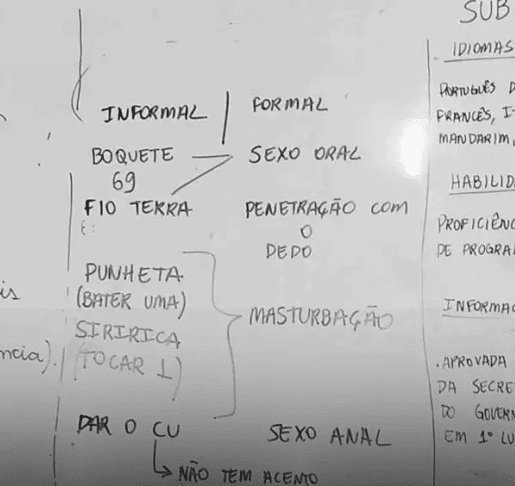 INFORMAL | FORMAL
BOQUETE — SEXO ORAL
69
FIO TERRA PENETRAÇÃO COM
O
DEDO
PUNHETA
(BATER UMA)
MASTURBAÇÃO
SIRIRICA
(TOCAR 1)
DAR O CU SEXO ANAL
↳ NÃO TEM ACENTO
SUB
IDIOMAS
PORTUGUÊS
FRANCÊS,
MANDARIM,
HABILID
PROFICIÊNC
DE PROGRA
INFORMAÇ
.APROVADA
DA SECRE
DO GOVERN
EM 1º LU
is
ncia).